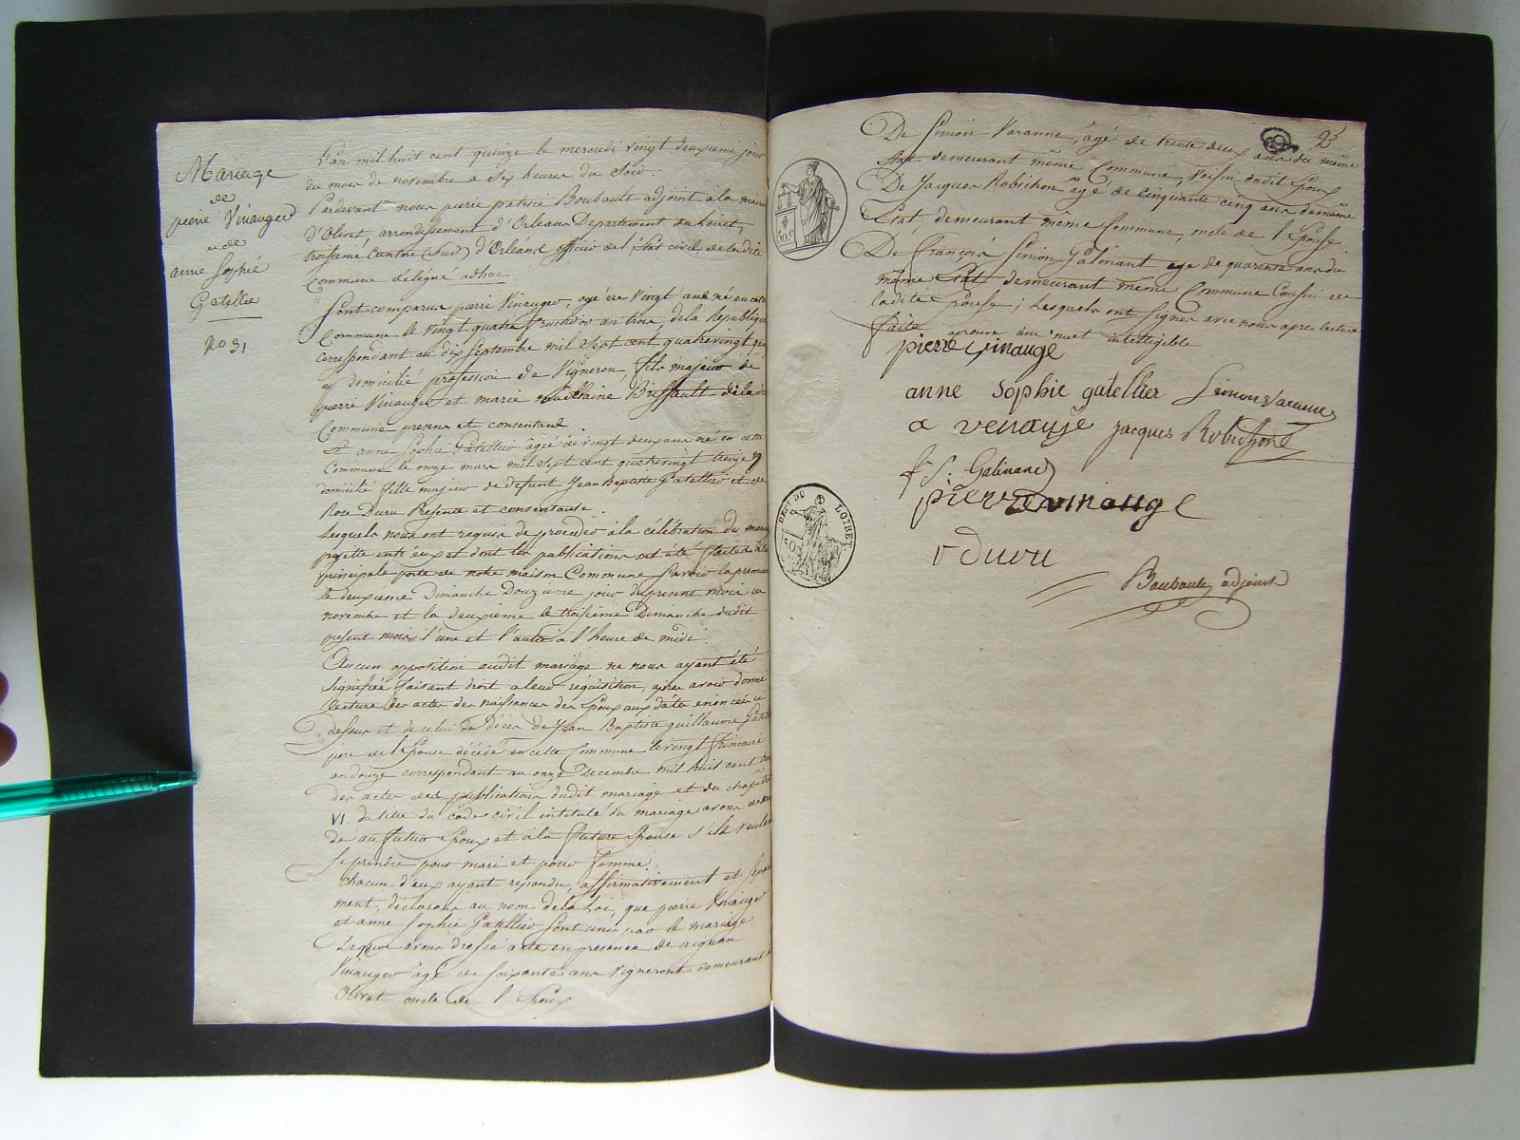 Mariage
de
pierre Vinauger
et de
anne Sophie
Gatellier
No 31
L'an mil huit cent quinze le mercredi vingt deuxieme jour
du mois de novembre a six heures du Soir.
Pardevant nous pierre patrice Boubault adjoint à la mairie
d'Olivet, arrondissement d'Orleans Departement du Loiret,
troisieme Canton (Sud) d'Orléans officier de l'Etat civil de la dite
Commune délégué adhoc.
Sont comparus pierre Vinauger, agé de vingt ans né en cette
Commune le vingt quatre fructidor an trois, de la République
correspondant au dix septembre mil Sept cent quatrevingt
domicilié profession de Vigneron, fils majeur de
pierre Vinauger et marie Brissault de la
Commune presens et consentans.
et anne Sophie Gatellier agée de vingt deux ans né en cette
Commune le onze mars mil sept cent quatrevingt treize y
domicilié fille majeur de defunt Jean Baptiste Gatellier et de
Rose Duru Presente et consentante.
Lesquels nous ont requis de proceder à la célébration du mariage
projetté entr'eux et dont les publications ont été faites à la
principale porte de notre maison Commune Savoir la premiere
le deuxieme Dimanche douzieme jour du present mois de
novembre et la deuxième le troisieme Dimanche dudit
present mois l'une et l'autre à l'heure de midi.
Aucun opposition audit mariage ne nous ayant été
Signifiée faisant droit a leur requisition, apres avoir donné
lecture des actes de naissances des Epoux aux dates enoncées ci
dessus et de celui de décès de Jean Baptiste guillaume
pere de l'Epouse décédé en cette Commune le vingt frimaire
an douze correspondant au onze Decembre mil huit cent
des actes de publications dudit mariage et du chapitre
VI du titre du code civil intitulé du mariage avons
de au futur Epoux et à la future Epouse s'ils veulent
Se prendre pour mari et pour femme.
chacun d'eux ayant repondu, affirmativement et
ment, declarons au nom de la Loi, que pierre Vinauger
et anne Sophie Gatellier Sont unis par le mariage
De quoi avons dressé acte en presence de
Vinauger agé de soixante ans Vigneron demeurant à
Olivet oncle de l'Epoux
De Simon Varanne, âgé de trente deux ans du même
demeurant même Commune, voisin dudit Epoux
De Jacques Robichon agé de cinquante cinq ans du même
Etat, demeurant même Commune, oncle de l'Epouse
De François Simon Galinant agé de quarante ans du
même Etat demeurant même Commune Cousin de
ladite Epouse; Lesquels ont Signés avec nous apres lecture
faite aprouvé un mot intelligible
pierre vinauge
anne Sophie gatellier Simon Varanne
a venauje Jacques Robichon
f S. Galinand
pierre vinauge
r duru
Boubault adjoint
DEP. DU LOIRET